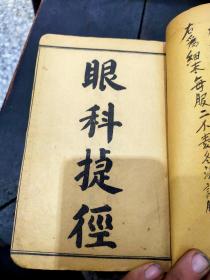 眼科捷徑
右為細末每服二不